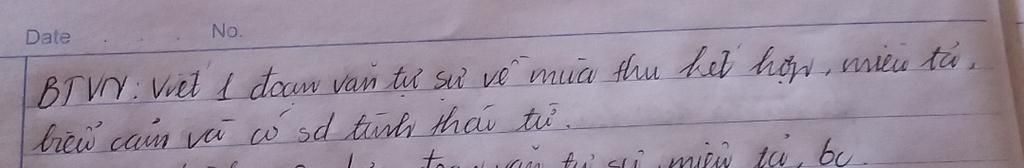 Date No.
BTVN: Viết 1 đoạn văn tự sự về mùa thu kết hợp, miêu tả,
biểu cảm và có sd tình thái từ.
đoạn văn tự sự, miêu tả, bc